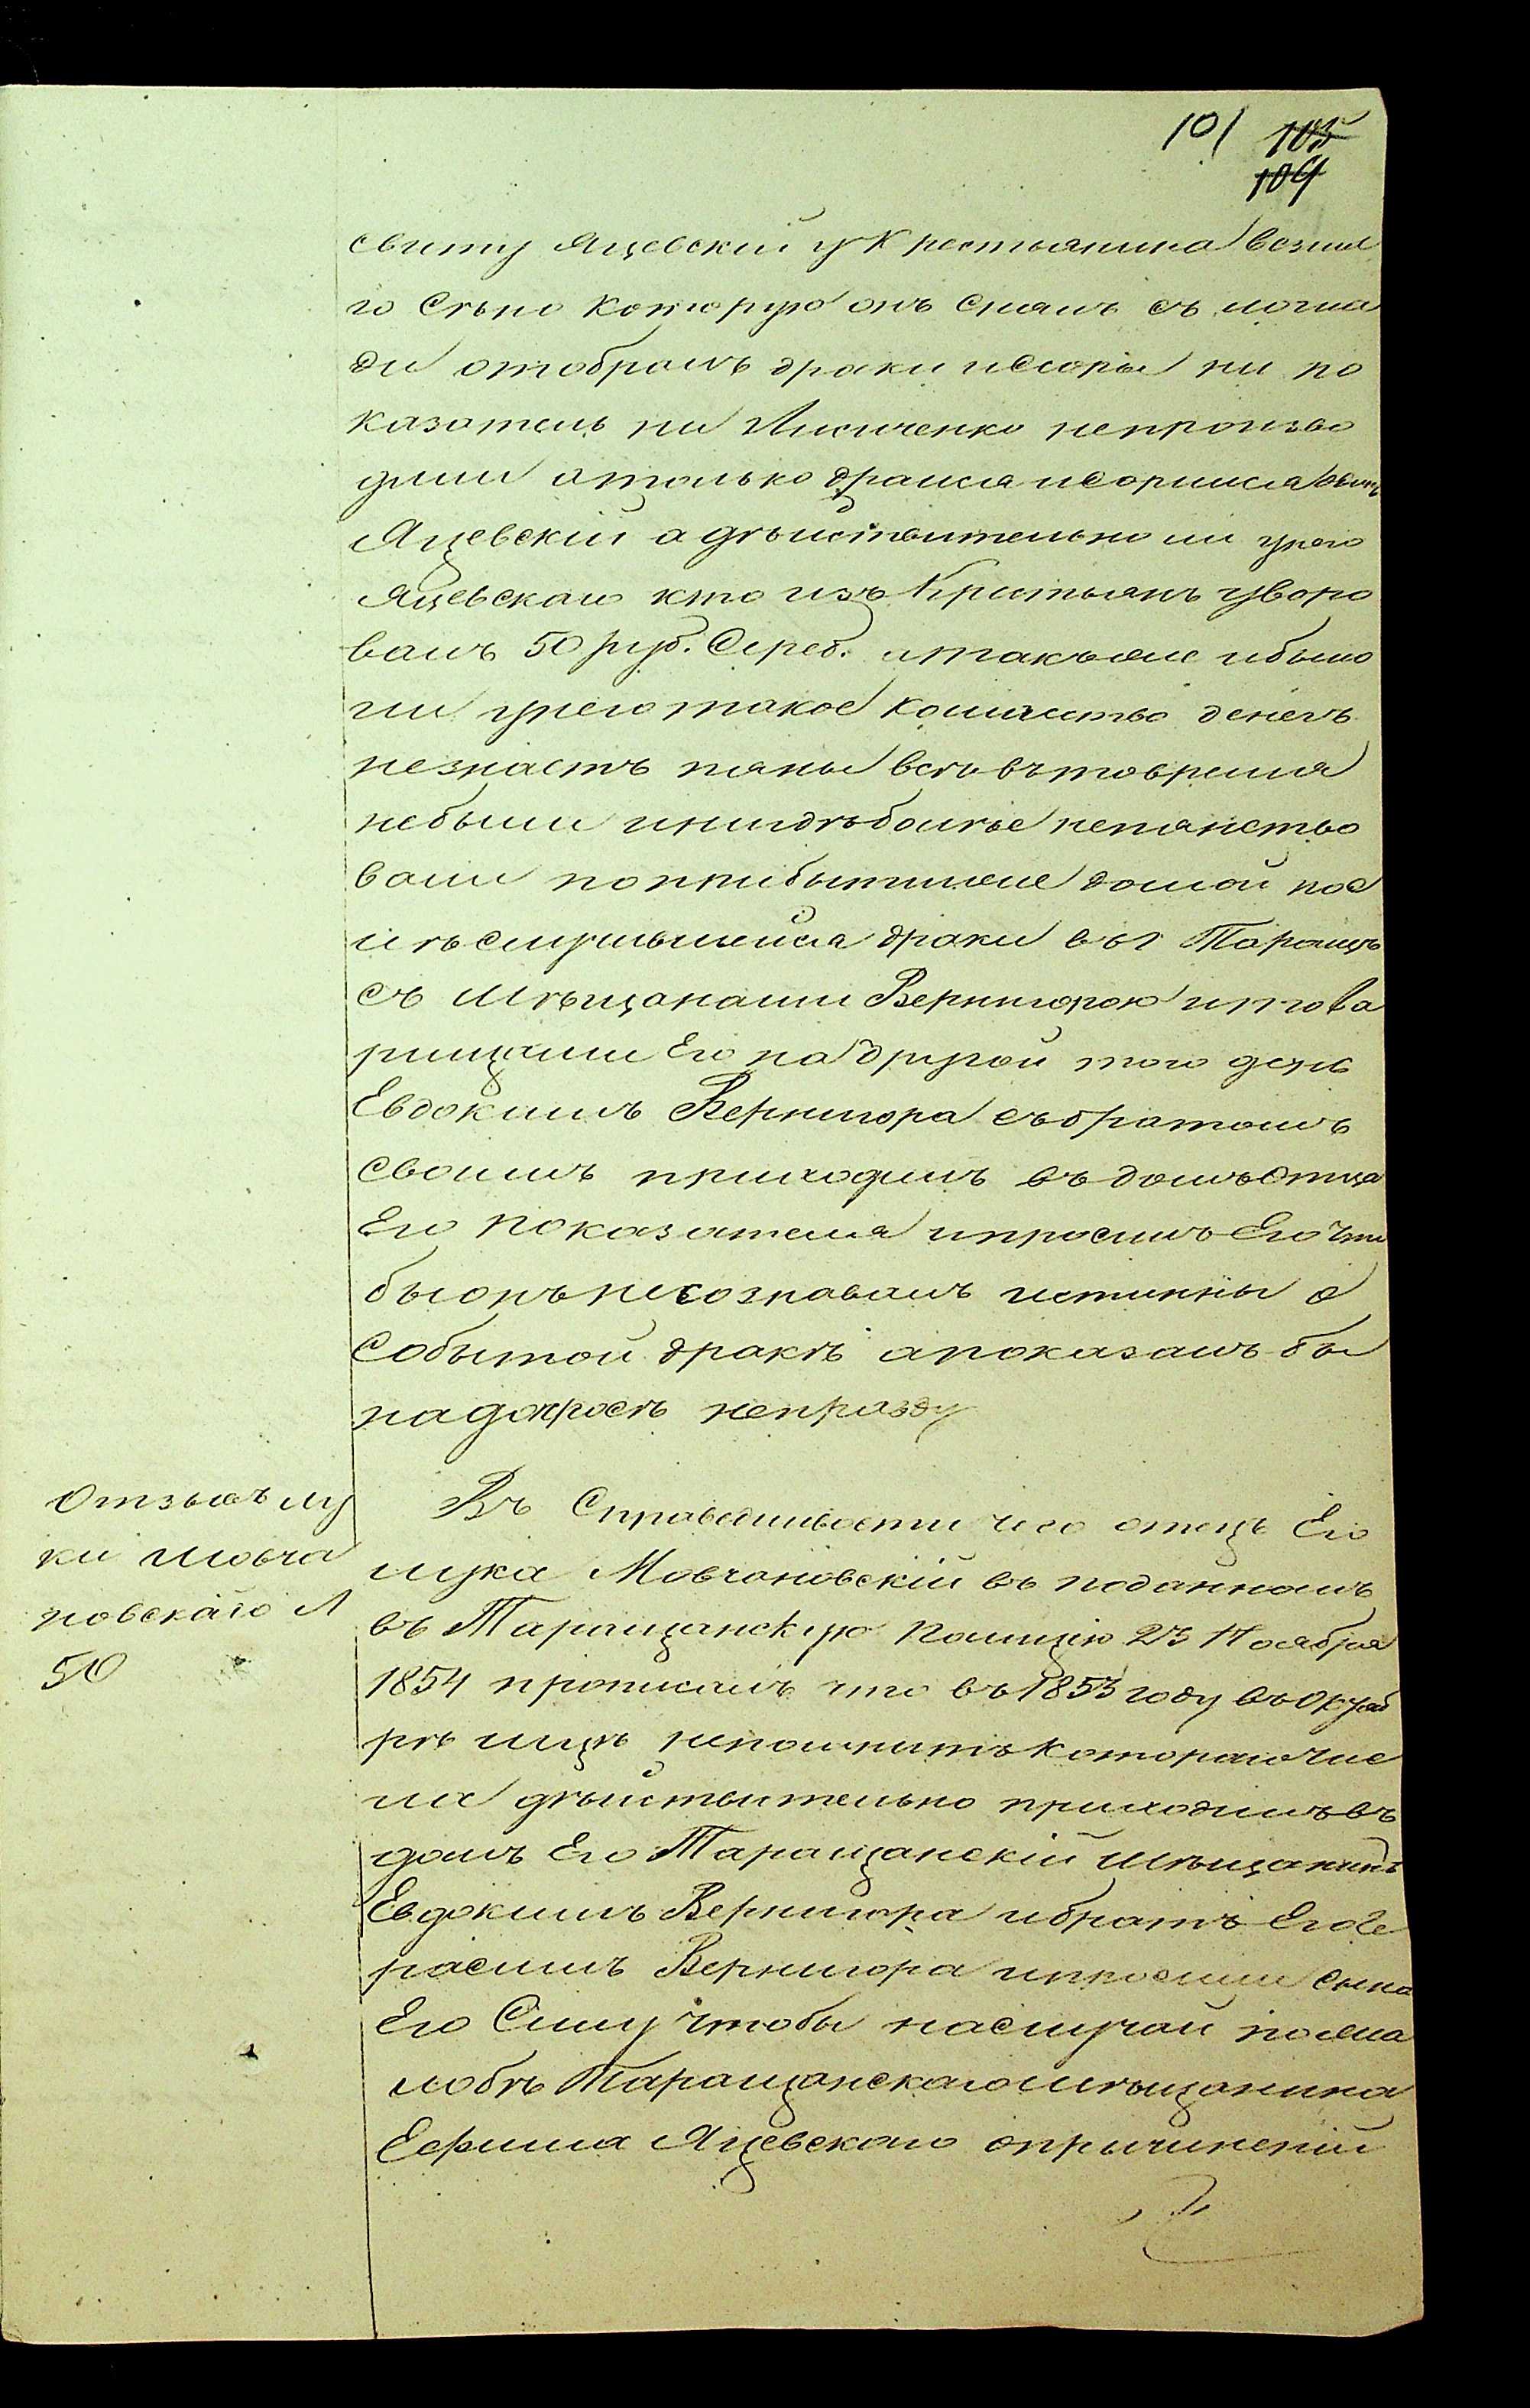 101 105
109
свиту Яцевский у Крестьянина везше
го Сѣно которую онъ снялъ съ лоша
ди отобралъ драки и Соры ни по
казатель ни Лисиченко непроизво
дили атолько дрался исорился
Яцевскій а дѣйствительно ли унего
Яцевскаго кто изъ Кристьянъ уворо
валъ 50 руб. Сереб. итакъже ибыло
ли унего такое количество денегъ
незнаетъ пяны всѣ вътовремя
небыли инигдѣболѣе непянство
вали поприбытиеже домой пос
лѣслучившейся драки въ г Таращѣ
съ Мѣщанами Вернигорою итова
рищами Его на другой того день
Евдокимъ Вернигора събратомъ
своимъ приходилъ въ домъ Отца
Его показателя ипросилъ Его что
бы онъ несознавалъ истинны о
Событой дракѣ апоказалъ бы
надопросѣ неправду
Отзывъ лу
ки Мовча
новскаго Л
50
Въ Справедливости чего отецъ Его
лука Мовчановскій въ поданномъ
въ Таращанскую Полицію 23 Ноября
1854 прописалъ что въ 1853 году въ Октяб
рѣ мцѣ непомнитъ котораго чис
ла дѣйствительно приходилъ въ
домъ Его Таращанскій Мѣщанинъ
Евдокимъ Вернигора ибратъ Его Ге
расимъ Вернигора ипросили сына
Его Симу чтобы наслучай пожа
лобѣ Таращанскаго Мѣщанина
Ефима Яцевскаго опричиненіи